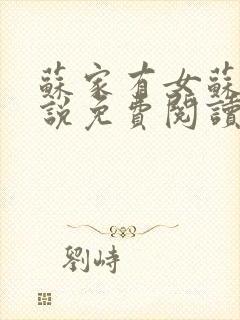 蘇家有女蘇
說免費閱讀
劉峙